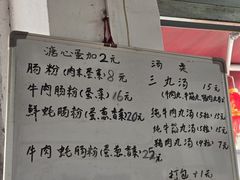 溏心蛋加2元
肠粉(肉末蛋菜)8元
牛肉肠粉(蛋菜)16元
鲜蚝肠粉(蛋葱韭菜)20元
牛肉蚝肠粉(蛋葱韭菜)25元
汤类
三丸汤 15元
纯牛肉丸汤(5粒)15元
纯牛筋丸汤(5粒)15元
猪肉丸汤(5粒)15元
打包+1元